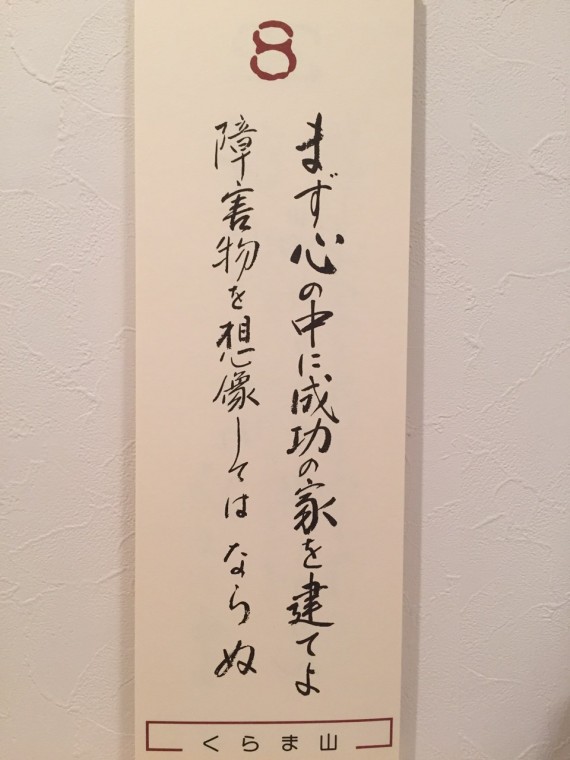 8
まず心の中に成功の家を建てよ
障害物を想像してはならぬ
くらま山